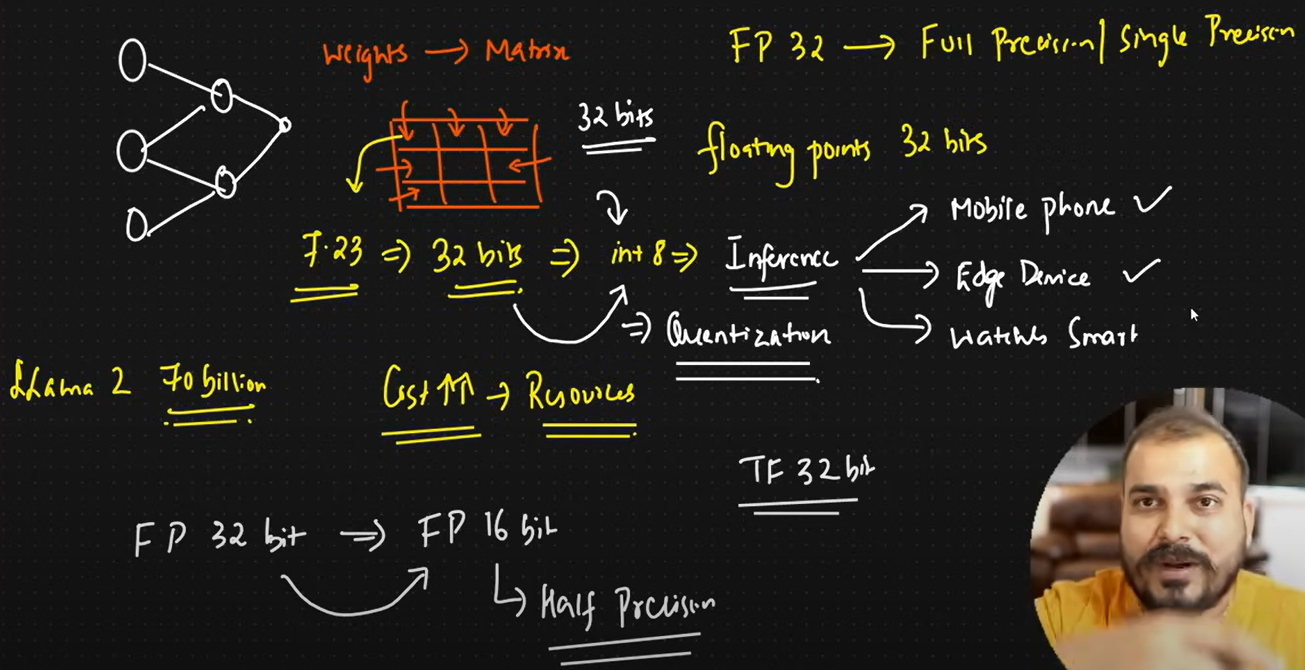 Weights → Matrix
FP 32 → Full Precision/ Single Precision
32 bits
floating points 32 bits
7.23 ⇒ 32 bits ⇒ int 8 ⇒ Inference
Mobile phone ✓
Edge Device ✓
Watches Smart
⇒ Quantization
LLama 2 70 billion
Cost ↑↑ → Resources
TF 32 bit
FP 32 bit ⇒ FP 16 bit
Half Precision